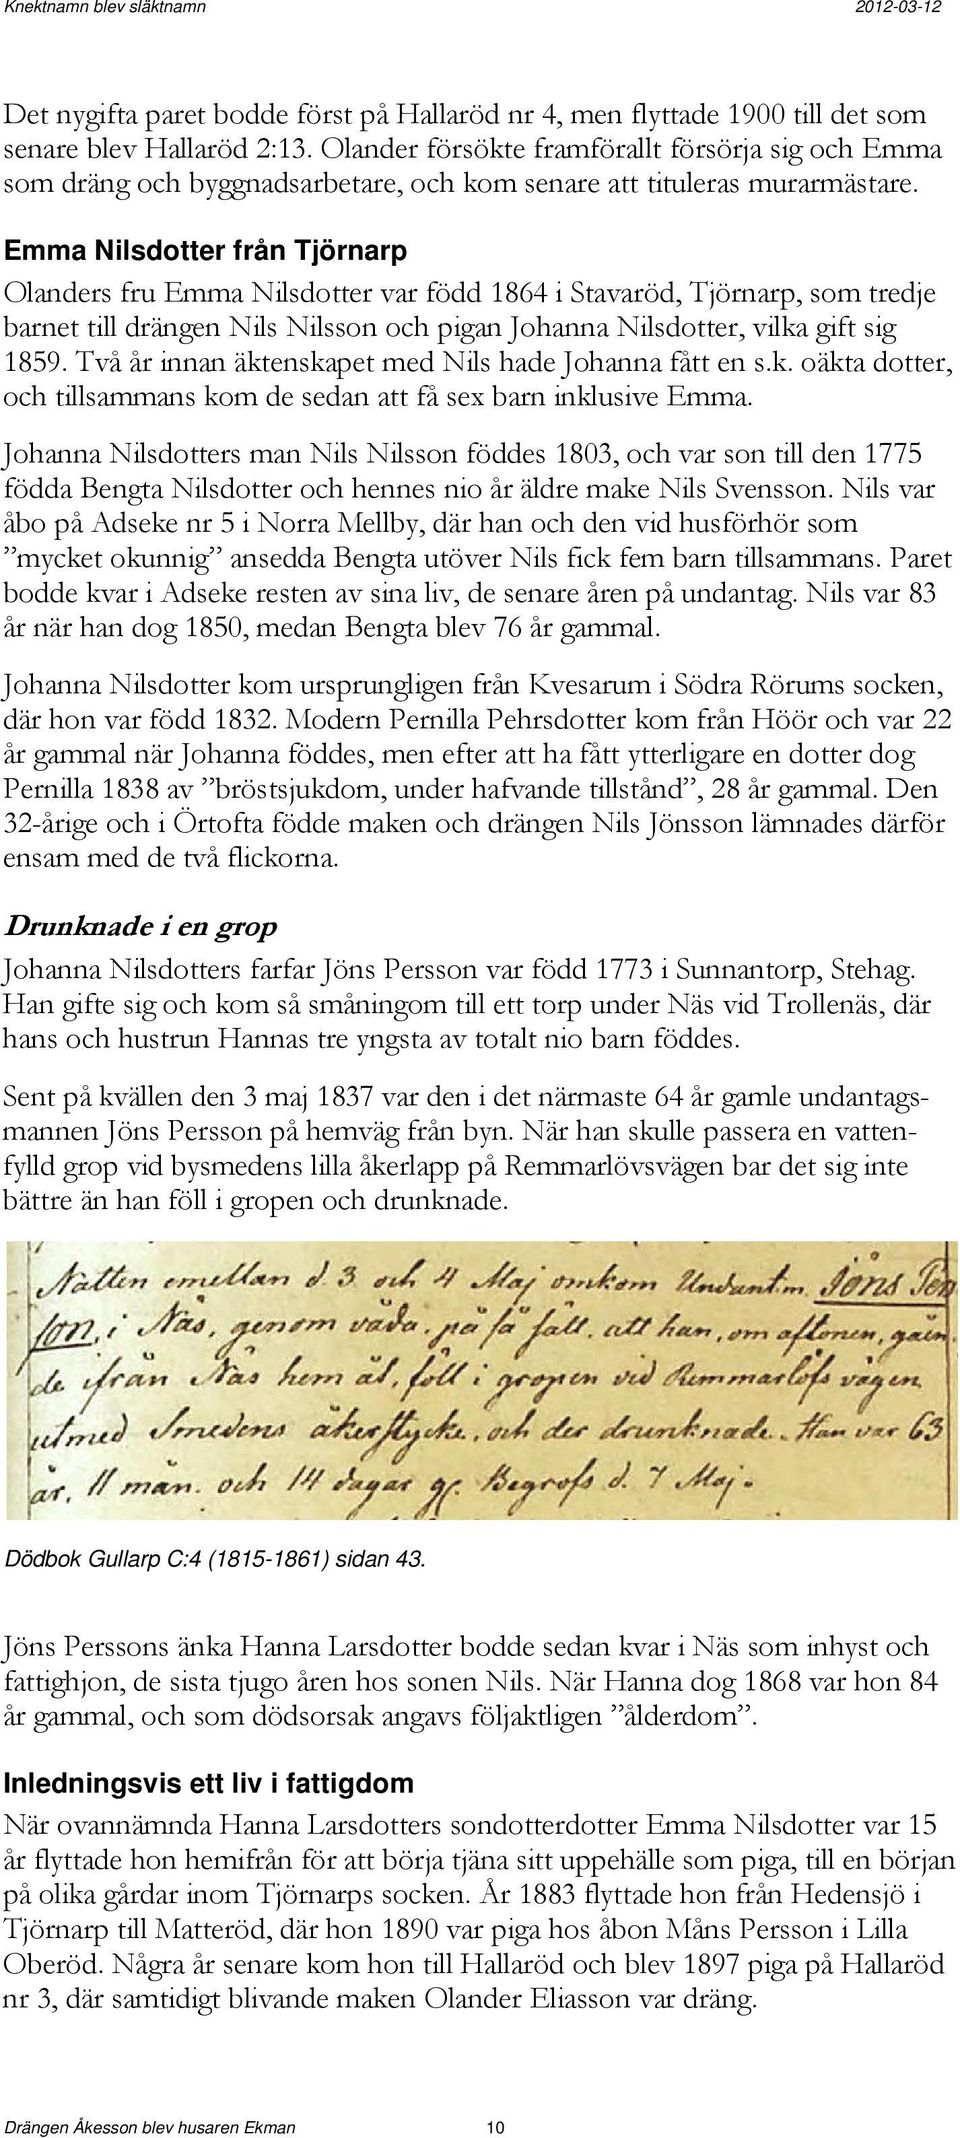 Knektnamn blev släktnamn 2012-03-12
Det nygifta paret bodde först på Hallaröd nr 4, men flyttade 1900 till det som
senare blev Hallaröd 2:13. Olander försökte framförallt försörja sig och Emma
som dräng och byggnadsarbetare, och kom senare att tituleras murarmästare.
Emma Nilsdotter från Tjörnarp
Olanders fru Emma Nilsdotter var född 1864 i Stavaröd, Tjörnarp, som tredje
barnet till drängen Nils Nilsson och pigan Johanna Nilsdotter, vilka gift sig
1859. Två år innan äktenskapet med Nils hade Johanna fått en s.k. oäkta dotter,
och tillsammans kom de sedan att få sex barn inklusive Emma.
Johanna Nilsdotters man Nils Nilsson föddes 1803, och var son till den 1775
födda Bengta Nilsdotter och hennes nio år äldre make Nils Svensson. Nils var
åbo på Adseke nr 5 i Norra Mellby, där han och den vid husförhör som
”mycket okunnig” ansedda Bengta utöver Nils fick fem barn tillsammans. Paret
bodde kvar i Adseke resten av sina liv, de senare åren på undantag. Nils var 83
år när han dog 1850, medan Bengta blev 76 år gammal.
Johanna Nilsdotter kom ursprungligen från Kvesarum i Södra Rörums socken,
där hon var född 1832. Modern Pernilla Pehrsdotter kom från Höör och var 22
år gammal när Johanna föddes, men efter att ha fått ytterligare en dotter dog
Pernilla 1838 av ”bröstsjukdom, under hafvande tillstånd”, 28 år gammal. Den
32-årige och i Örtofta födde maken och drängen Nils Jönsson lämnades därför
ensam med de två flickorna.
Drunknade i en grop
Johanna Nilsdotters farfar Jöns Persson var född 1773 i Sunnantorp, Stehag.
Han gifte sig och kom så småningom till ett torp under Näs vid Trollenäs, där
hans och hustrun Hannas tre yngsta av totalt nio barn föddes.
Sent på kvällen den 3 maj 1837 var den i det närmaste 64 år gamle undantags-
mannen Jöns Persson på hemväg från byn. När han skulle passera en vatten-
fylld grop vid bysmedens lilla åkerlapp på Remmarlövsvägen bar det sig inte
bättre än han föll i gropen och drunknade.
Natten emellan d. 3 och 4 Maj omkom Undantm. Jöns Pers
son, i Näs, genom våda, på så sätt, att han, om aftonen, gåen
de ifrån Näs hem åt, föll i gropen vid Remmarlöfs vägen
utmed Smedens åkerstycke, och der drunknade. Han var 63
år, 11 mån. och 14 dagar gl. Begrofs d. 7 Maj.
Dödbok Gullarp C:4 (1815-1861) sidan 43.
Jöns Perssons änka Hanna Larsdotter bodde sedan kvar i Näs som inhyst och
fattighjon, de sista tjugo åren hos sonen Nils. När Hanna dog 1868 var hon 84
år gammal, och som dödsorsak angavs följaktligen ”ålderdom”.
Inledningsvis ett liv i fattigdom
När ovannämnda Hanna Larsdotters sondotterdotter Emma Nilsdotter var 15
år flyttade hon hemifrån för att börja tjäna sitt uppehälle som piga, till en början
på olika gårdar inom Tjörnarps socken. År 1883 flyttade hon från Hedensjö i
Tjörnarp till Matteröd, där hon 1890 var piga hos åbon Måns Persson i Lilla
Oberöd. Några år senare kom hon till Hallaröd och blev 1897 piga på Hallaröd
nr 3, där samtidigt blivande maken Olander Eliasson var dräng.
Drängen Åkesson blev husaren Ekman 10